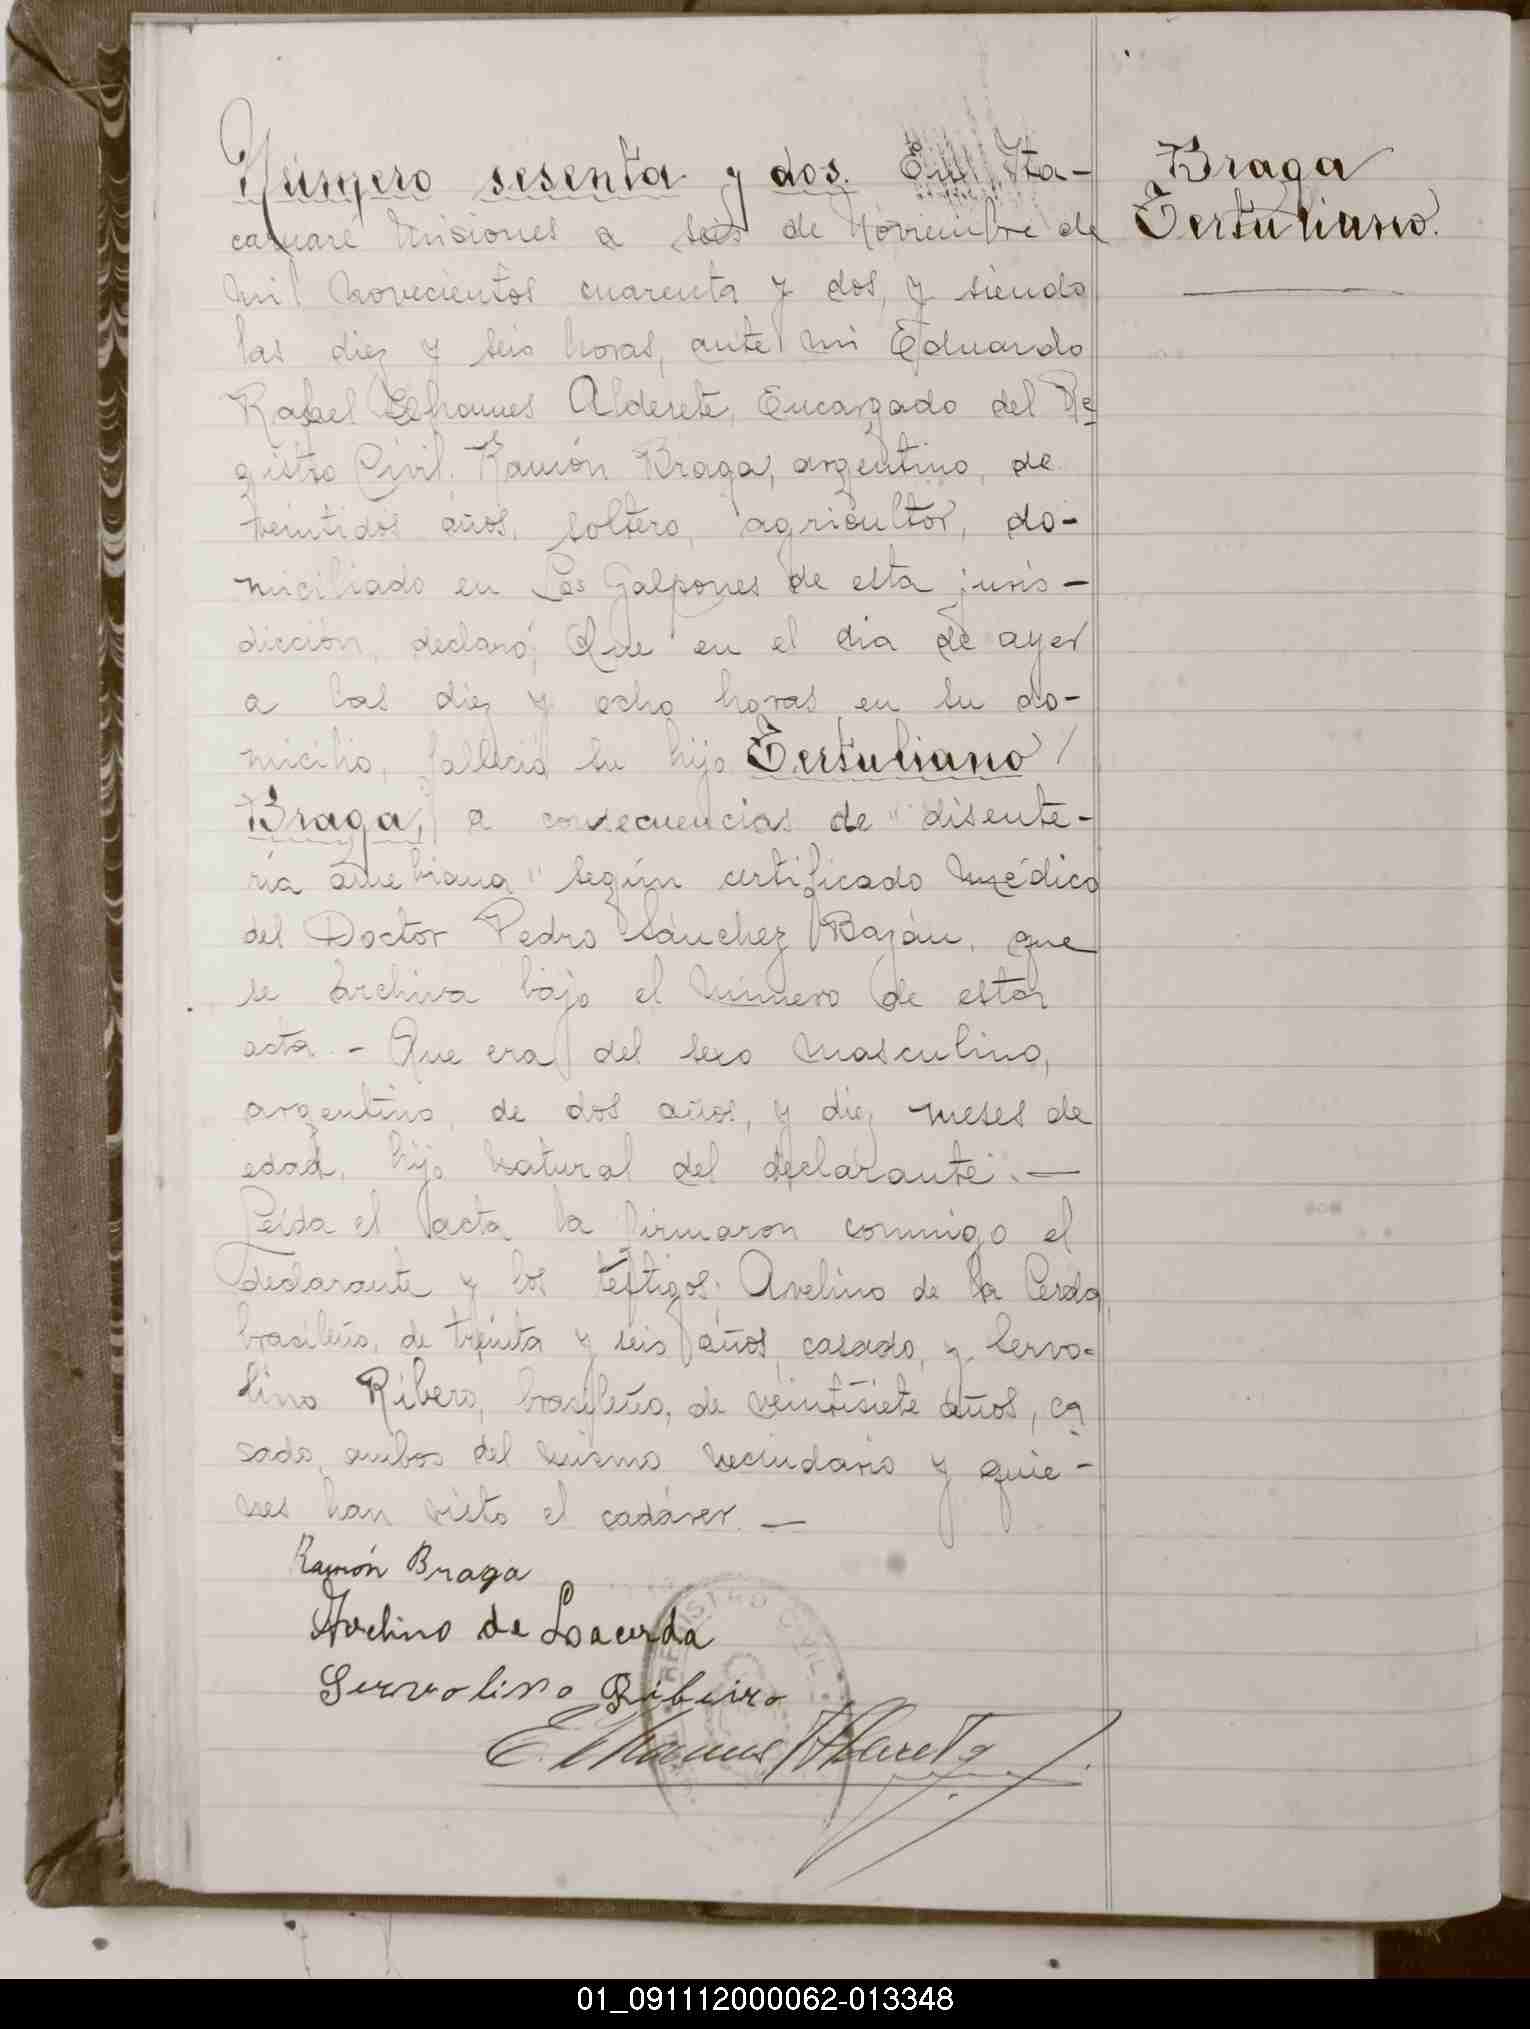 Número sesenta y dos. En Ita-
caruaré Misiones a seis de Noviembre de
mil novecientos cuarenta y dos, y siendo
las diez y seis horas, ante mi Eduardo
Rafael Alderete, Encargado del Re
gistro Civil. Ramón Braga, argentino, de
veintidós años, soltero, agricultor, do-
miciliado en Los Galpones de esta juris-
dicción, declaró; Que en el dia de ayer
a las diez y ocho horas en su do-
micilio, falleció su hijo Tertuliano
Braga, a consecuencias de "disente-
ría amebiana" según certificado médico
del Doctor Pedro Sánchez Bazán, que
se archiva bajo el número de esta
acta. - Que era del sexo masculino,
argentino, de dos años, y diez meses de
edad, hijo natural del declarante. —
Leída el acta la firmaron conmigo el
declarante y los testigos; Avelino de la Cerda,
brasileño, de treinta y seis años, casado, y Servo=
lino Ribero, brasileño, de veintisiete años, ca
sado, ambos del mismo vecindario y quie-
nes han visto el cadáver. —
Ramón Braga
Avelino de Loacerda
Servolino Ribeiro
Braga
Tertuliano.
REGISTRO CIVIL
01_091112000062-013348